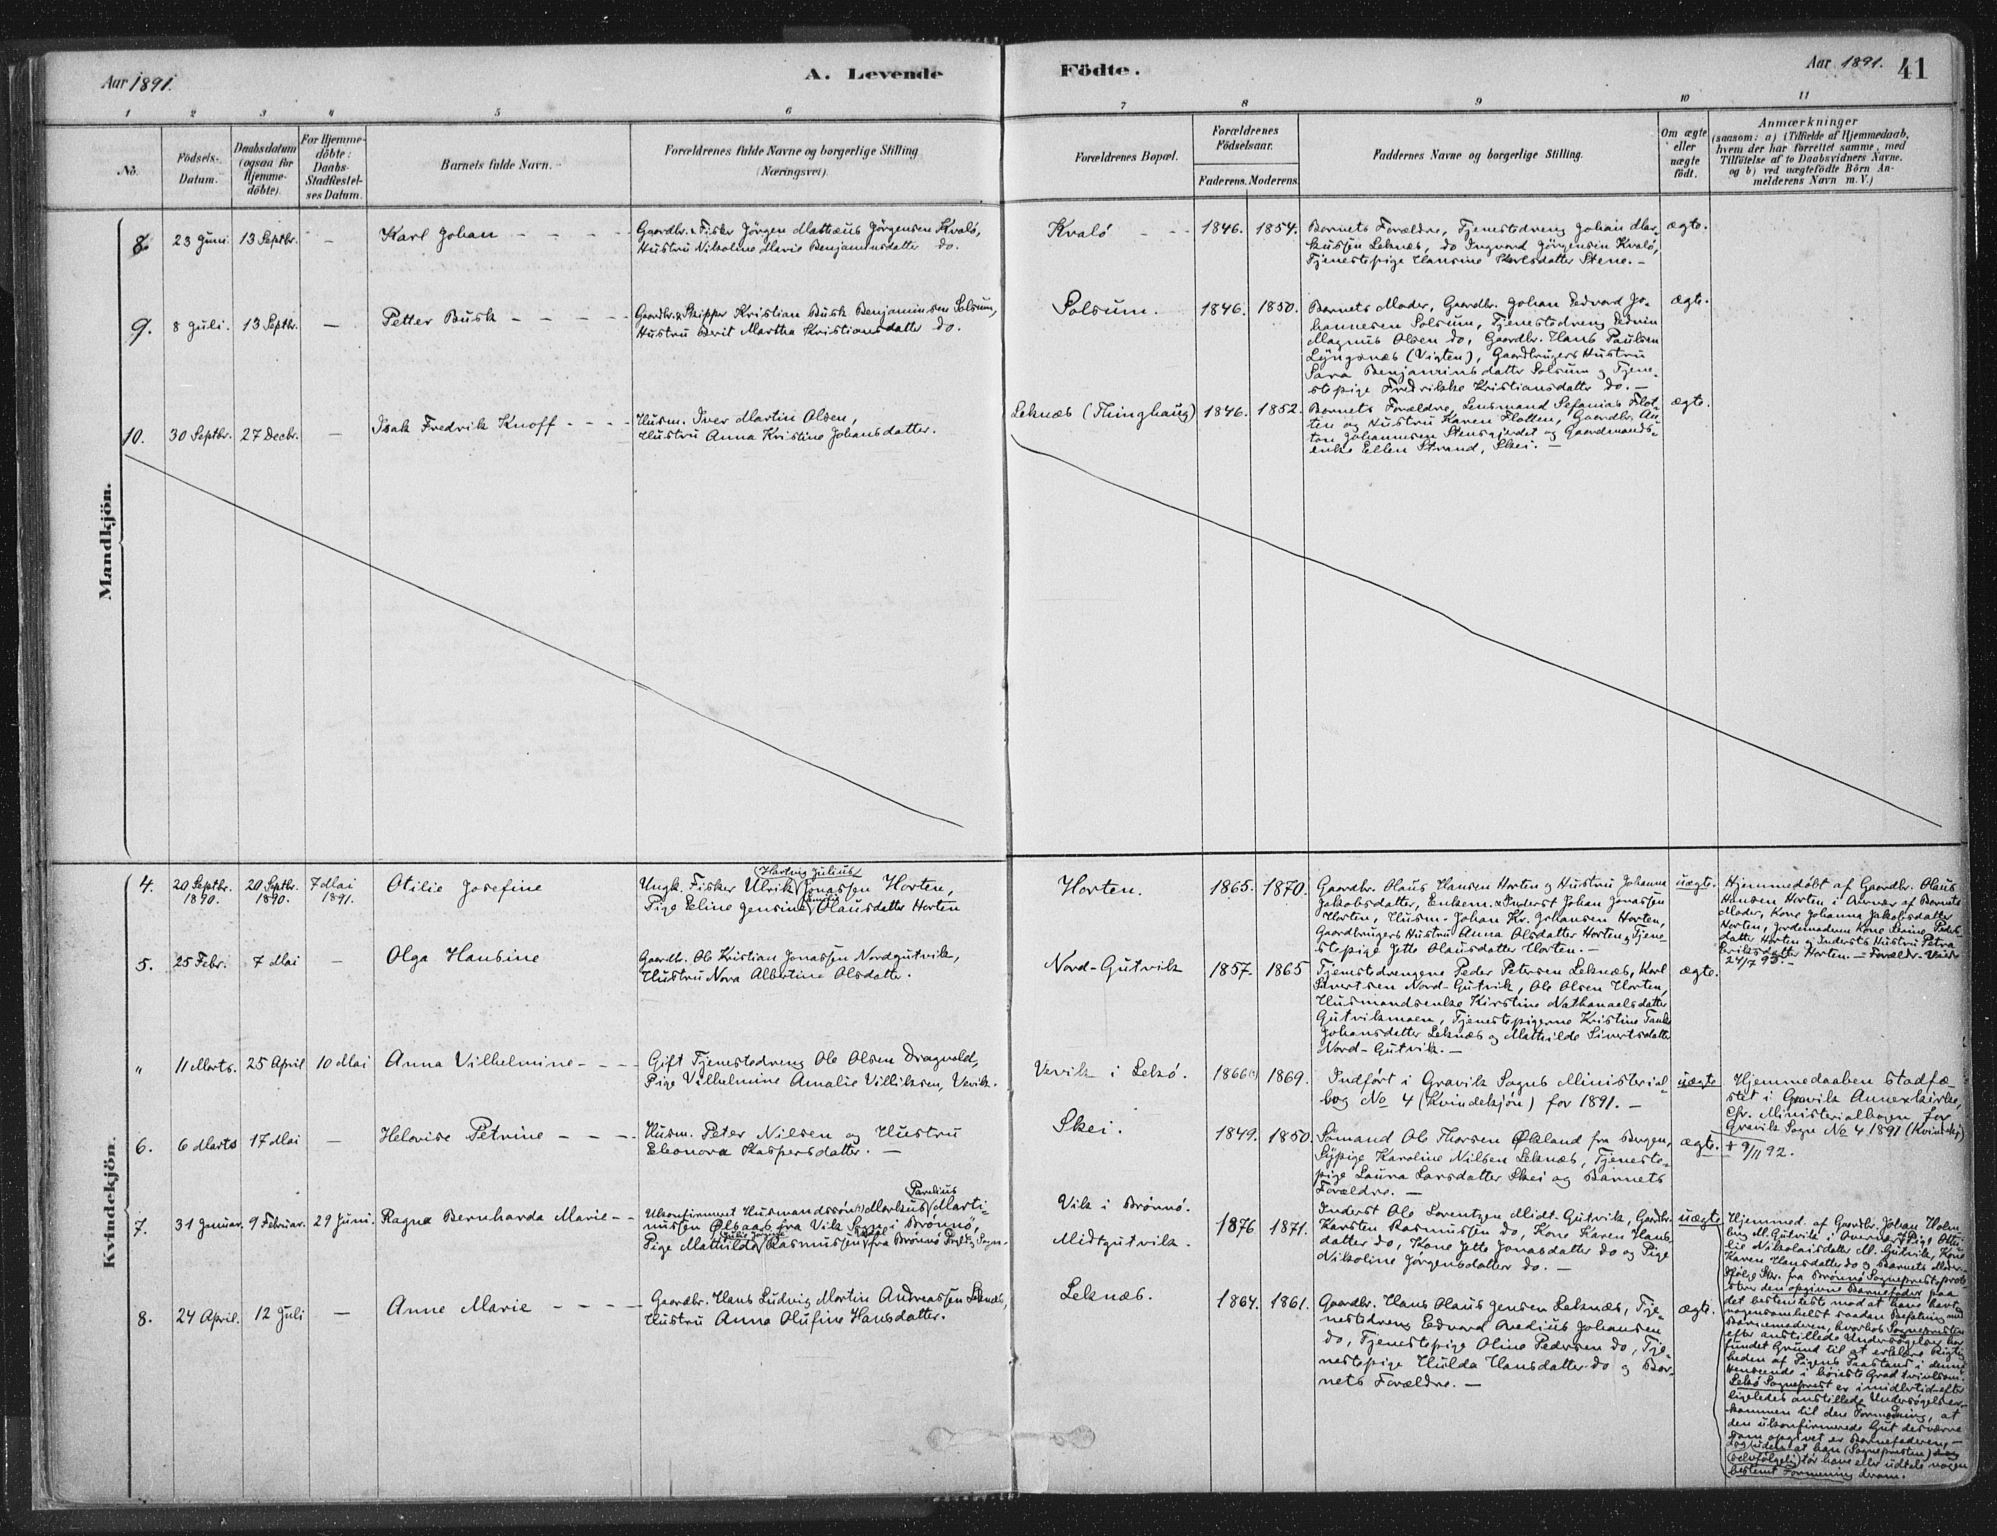 Aar 1891.
A. Levende
Födte.
Aar 1891.
41
1 2 3 4 5 6 7 8 9 10 11
No.
Födsels-
Datum.
Daabsdatum
(ogsaa for
Hjemme-
döbte).
For Hjemme-
döbte:
Daabs-
Stadfæstel-
ses Datum.
Barnets fulde Navn.
Forældrenes fulde Navne og borgerlige Stilling
(Næringsvei).
Forældrenes Bopæl.
Forældrenes
Födselsaar.
Faderens. Moderens.
Faddernes Navne og borgerlige Stilling.
Om ægte
eller
uægte
födt.
Anmærkninger
(saasom: a) i Tilfælde af Hjemmedaab,
hvem der har forrettet samme, med
Tilföielse af to Daabsvidners Navne,
og b) ved uægtefödte Börn An-
melderens Navn m. V.)
Mandkjön.
8. 23 Juni. 13 Septbr. - Karl Johan - - - -
Gaardbr. & Fisker Jörgen Mathæus Jörgensen Kvalö,
Hustru Nikoline Marie Benjaminsdatter do.
Kvalö - - 1846. 1854.
Barnets Forældre, Tjenestedreng Johan Mar-
kussen Leknæs, do Ingvard Jörgensen Kvalö,
Tjenestepige Hansine Karlsdatter Stene. -
ægte.
9. 8 Juli. 13 Septbr. - Petter Busk - - - -
Gaardbr. & Skipper Kristian Busk Benjaminsen Solsum,
Hustru Berit Martha Kristiansdatter do.
Solsum. 1846. 1850.
Barnets Moder, Gaardbr. Johan Edvard Jo-
hannesen Solsum, Tjenestedreng Edvin
Magnus Olsen do, Gaardbr. Hans Paulsen
Lyngsnæs (Vigten), Gaardbrugers Hustru
Sara Benjaminsdatter Solsum og Tjene-
stepige Fredrikke Kristiansdatter do. -
ægte.
10. 30 Septbr. 27 Decbr. - Isak Fredrik Knoff - - - -
Husm. Iver Martin Olsen,
Hustru Anna Kristine Johansdatter.
Leknæs (Thinghaug) 1846. 1852.
Barnets Forældre, Lensmand Sefanias Flot-
ten og Hustru Karen Flotten, Gaardbr. An-
ton Johannesen Stensgjerdet og Gaardmands-
enke Ellen Strand, Skei. -
ægte.
Kvindekjön.
4. 20 Septbr. 1890. 20 Septbr. 1890. 7 Mai 1891. Otilie Josefine
Ungk. Fisker Ulrik (Hartvig Julius) Jonassen Horten,
Pige Eline Jensine Olausdatter Horten
Horten. 1865. 1870.
Gaardbr. Olaus Hansen Horten og Hustru Johanna
Jakobsdatter, Enkem. & Inderst Johan Jonassen
Horten, Husm. Johan Kr. Johansen Horten,
Gaardbrugers Hustru Anna Olsdatter Horten, Tjene-
stepige Jette Olausdatter Horten. -
uægte.
Hjemmedöbt af Gaardbr. Olaus
Hansen Horten i Nærvær af Barnets
Moder, Kone Johanna Jakobsdatter
Horten, Jordemoderen Kone
datter Horten og Inderst's Hustru Petra
Eriksdatter Horten. -
24/7 95. -
5. 25 Febr. 7 Mai - Olga Hansine
Gaardbr. Ole Kristian Jonassen Nordgutvik,
Hustru Nora Albertine Olsdatter.
Nord-Gutvik 1857. 1865
Tjenestedrengene Peder Petersen Leknæs, Karl
Sivertsen Nord-Gutvik, Ole Olsen Horten,
Husmandsenke Kirstine Nathanaelsdatter
Gutvikmoen, Tjenestepigerne Kristine
Johansdatter Leknæs og Mathilde Sivertsdatter
Nord-Gutvik. -
ægte.
" 11 Marts. 25 April 10 Mai Anna Vilhelmine - - -
Gift Tjenestedreng Ole Olsen Dragvold,
Pige Vilhelmine Amalie Villiksen, Vævik.
Vævik i Lekö. 1866 1869.
Indfört i Gravik Sogns Ministerial-
bog No 4 (Kvindekjön) for 1891. -
uægte
Hjemmedaaben stadfæ-
stet i Gravik Annexkirke,
cfr. Ministerialbogen for
Gravik Sogn No 4 1891 (Kvindekj)
6. 6 Marts 17 Mai - Helovise Petrine - - -
Husm. Peter Nilsen og Hustru
Eleonora Kaspersdatter. -
Skei. 1849. 1850.
Sömand Ole Thorsen Ökland fra Bergen,
Sypige Karoline Nilsen Leknæs, Tjeneste-
pige Laura Larsdatter Skei og Barnets
Forældre. -
ægte.
+ 9/11 92.
7. 31 Januar. 9 Februar. 29 Juni. Ragna Bernharda Marie - -
Ukonfirmeret Husmandssön Markus (Parelius) Marti-
nussen fra Vik Sogn i Brönnö,
Pige Mathilde Rasmussen fra Brönnö
Vik i Brönnö.
Midtgutvik. 1876 1871.
Inderst Ole Lorentzen Midt-Gutvik, Gaardbr.
Karsten Rasmussen do, Kone Karen Hans-
datter do, Kone Jette Jonasdatter do og Pige
Nikoline Jörgensdatter do. -
uægte
Hjemmed. af Gaardbr. Johan Holm-
M. Gutvik i Nærvær af Pige Otti-
lie Nikolaisdatter M. Gutvik, Kone
Karen Hansdatter do og Barnets Moder.
Ifölge Skr. fra Brönnö Sognepræst
den opgivne Barnefader paa
det bestemteste mod at have havt
nogensomhelst saadan Befatning med
Barnemoderen, hvorhos Sognepræsten
efter anstillede Undersögelser har
fundet Grund til at erklære Rigtig-
heden af Pigens Paastand i denne
Henseende i höieste Grad tvivlsom.
Lekö Sognepræst er imidlertid efter
ligeledes anstillede Undersögelser
kommen til den Formening, at
den ukonfirmerede Gut desværre
som opgivet er Barnefaderen, -
dog uden at han (Sognepræsten)
(selvfölgelig) tör have eller udtale nogen
bestemt Formening derom.
8. 24 April. 12 Juli - Anne Marie - - - -
Gaardbr. Hans Ludvig Martin Andreassen Leknæs,
Hustru Anna Olufine Hansdatter.
Leknæs. 1864. 1861.
Gaardbr. Hans Olaus Jensen Leknæs, Tje-
nestedreng Edvard Johansen
do, Tjenestepige Oline Pedersen do, Tje-
nestepige Hulda Hansdatter do og Bar-
nets Forældre. -
ægte.